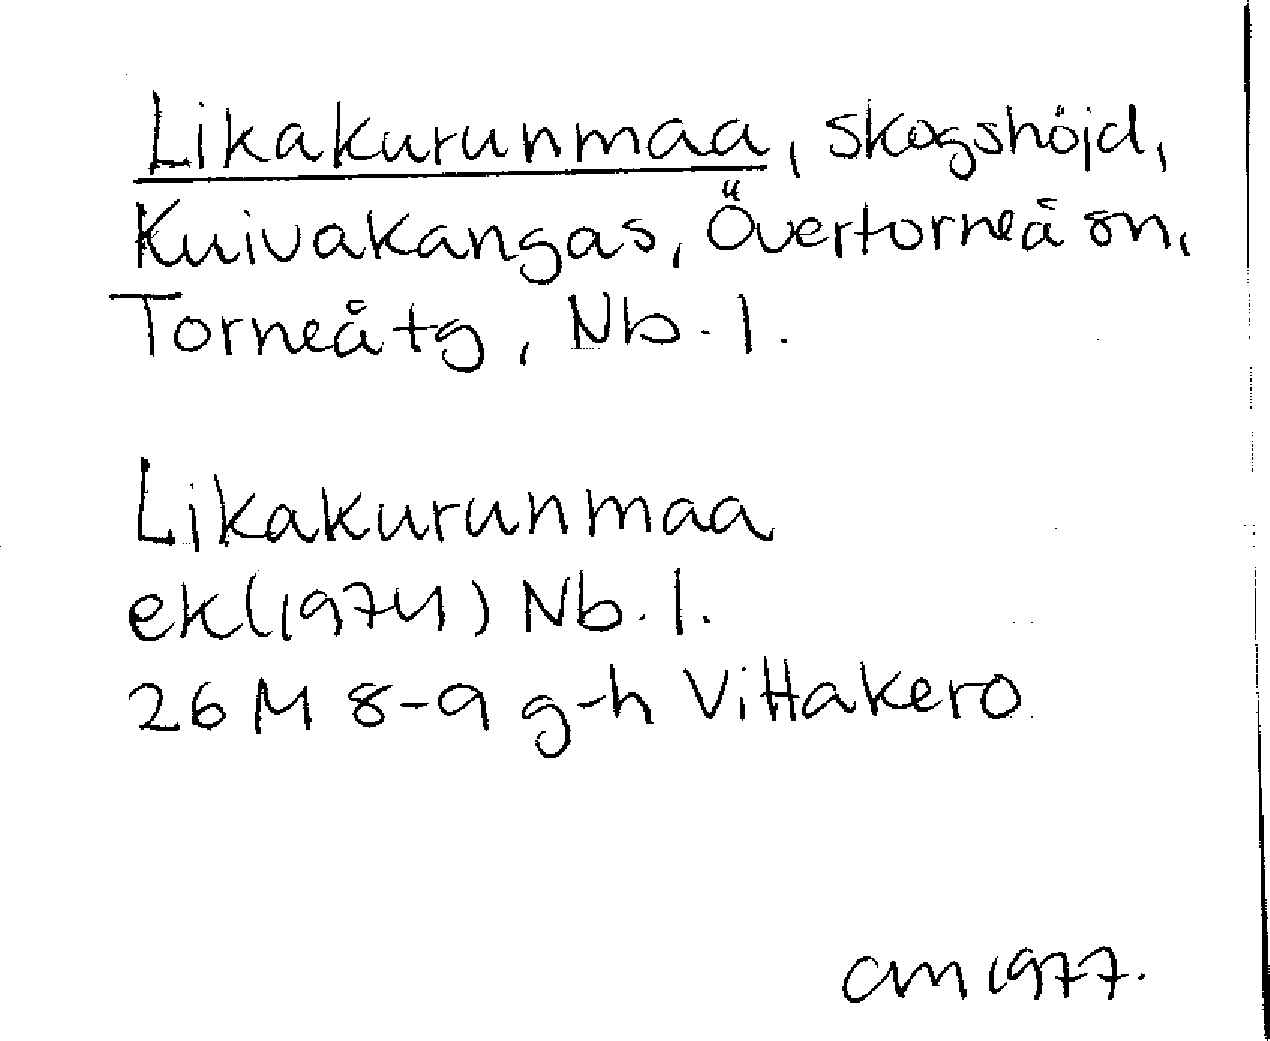 Likakurunmaa, skogshöjd,
Kuivakangas, Övertorneå sn,
Torneåtg, Nb. l.
Likakurunmaa
ek(1974) Nb. l.
26 M 8-9 g-h Vittakero
CM 1977.